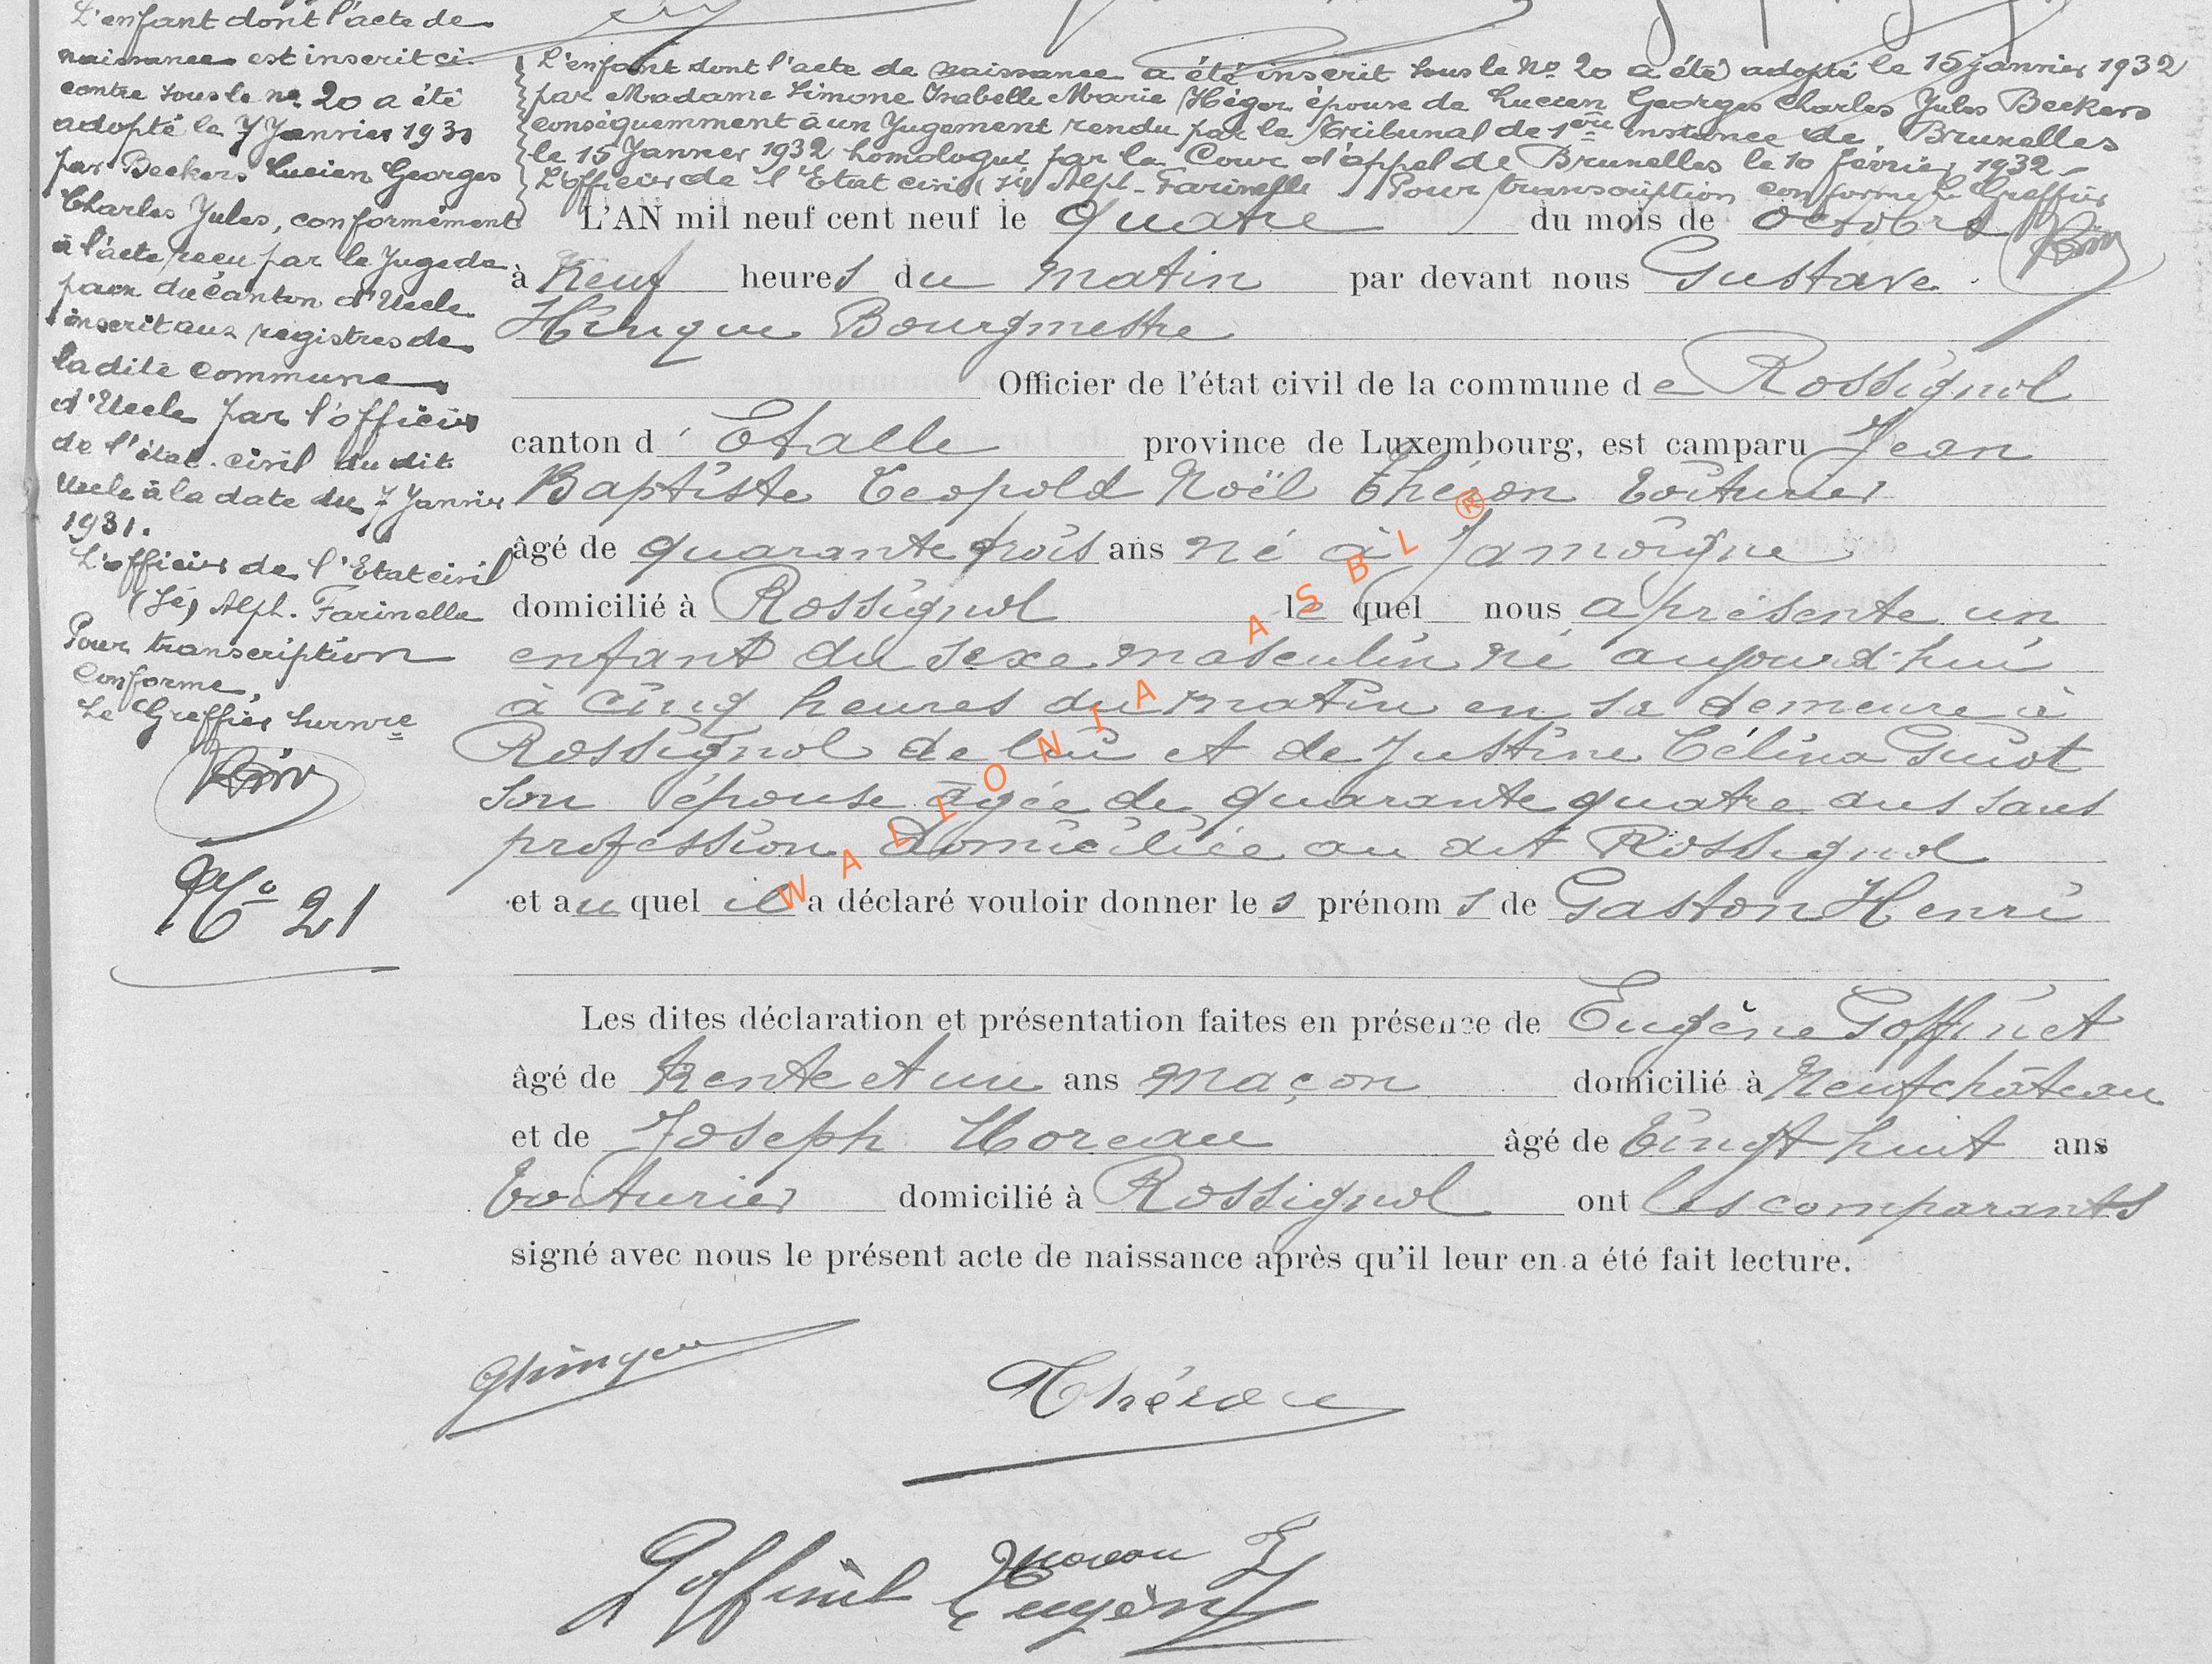 L'enfant dont l'acte de
naissance est inscrit ci-
contre sous le no 20 a été
adopté le 7 Janvier 1931
par Beckers Lucien Georges
Charles Jules, conformément
à l'acte reçu par le Juge de
paix du canton d'Uccle
inscrit aux registres de
la dite commune
d'Uccle par l'officier
de l'état-civil du dit
Uccle à la date du 7 Janvier
1931.
L'officier de l'Etat civil
(Sé) Alph. Farinelle
Pour transcription
conforme,
Le Greffier surnre
No 21
L'enfant dont l'acte de naissance a été inscrit sous le No 20 a été adopté le 15 janvier 1932
par Madame Simone Isabelle Marie Héger épouse de Lucien Georges Charles Jules Beckers
conséquemment à un Jugement rendu par le Tribunal de 1ère instance de Bruxelles
le 15 Janvier 1932 homologué par la Cour d'appel de Bruxelles le 10 février 1932 -
L'officier de l'Etat civil (sé) Alph. Farinelle Pour transcription conforme le Greffier
L'AN mil neuf cent neuf le quatre du mois de octobre
à neuf heures du matin par devant nous Gustave
Hinque Bourgmestre
Officier de l'état civil de la commune de Rossignol
canton d'Etalle province de Luxembourg, est camparu Jean
Baptiste Léopold Noël Théron Voiturier
âgé de quarante trois ans né à Jamoigne
domicilié à Rossignol lequel nous a présenté un
enfant du sexe masculin né aujourd'hui
à cinq heures du matin en sa demeure à
Rossignol de lui et de Justine Célina Guiot
son épouse âgée de quarante quatre ans sans
profession domiciliée au dit Rossignol
et auquel il a déclaré vouloir donner les prénoms de Gaston Henri
Les dites déclaration et présentation faites en présence de Eugène Goffinet
âgé de trente et un ans maçon domicilié à Neufchâteau
et de Joseph Moreau âgé de Vingt huit ans
Voiturier domicilié à Rossignol ont les comparants
signé avec nous le présent acte de naissance après qu'il leur en a été fait lecture.
GHinque
Théron
Moreau J
Goffinet Eugène
WALLONIA ASBL ®